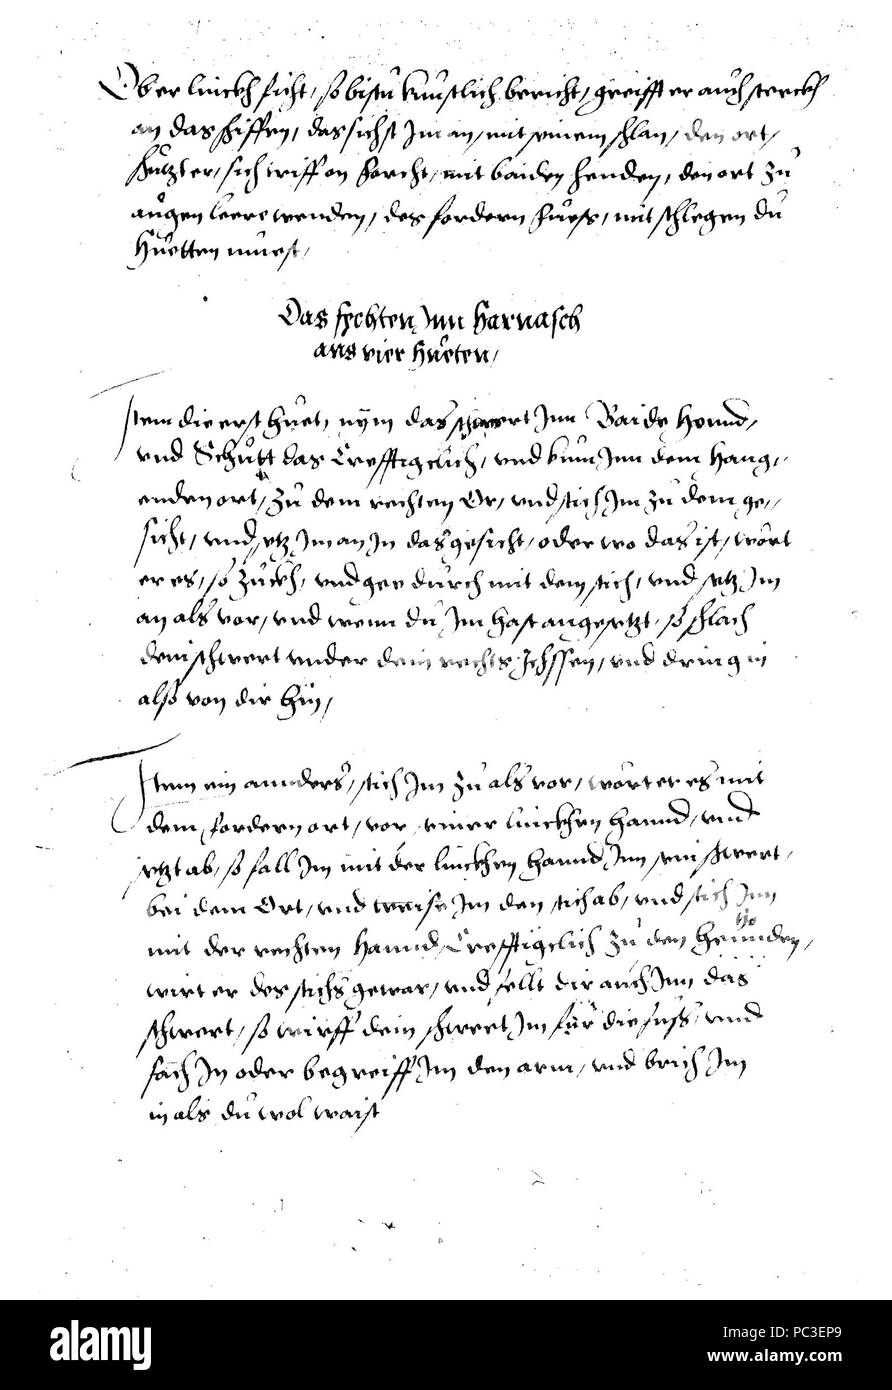 Ober linckh sicht, so bistu kunstlich bericht, greifft er auch sterckh
an das schiffen, das sichst Im an, mit seinem schlan, den ort,
schutzt er, sich triff on forcht, mit baiden henden, den ort zu
augen leere wenden, des fordern fuess, mit schlegen du
huetten muest,
Das fechten Inn Harnasch
aus vier hueten,
Item die erst huet, nym das schwert Inn Baide Hennd,
vnd Schutt das Crefftigclich, vnd kum Inn dem Hang,,
enden ort, zu dem rechten Or, vnd stich Im zu dem ge,,
sicht, vnd setz Im an In das gesicht, oder wo das ist, wört
er es, so zuckh, vnd gee durch mit dem stich, vnd setz Im
an als vor, vnd wenn du Im hast angesetzt, so schlach
dein schwert vnder dein rechts Ichssen, vnd dring in
also von dir hin,
Item ein annders, stich Im zu als vor, wört er es mit
dem fordern ort, vor seiner linckhen hannd, vnd
setzt ab, so fall Im mit der linckhen hannd Inn sein schwert,
bei dem Ort, vnd weise Im den stich ab, vnd stich Inn
mit der rechten Hannd, Crefftigclich zu den henden,
wirt er des stichs gewar, vnd fellt dir auch Inn das
schwert, so wirff dein schwert Im für die fuss, vnd
fach In oder begreiff Im den arm, vnd brich Im
in als du wol waist
alamy
Image ID: PC3EP9
www.alamy.com